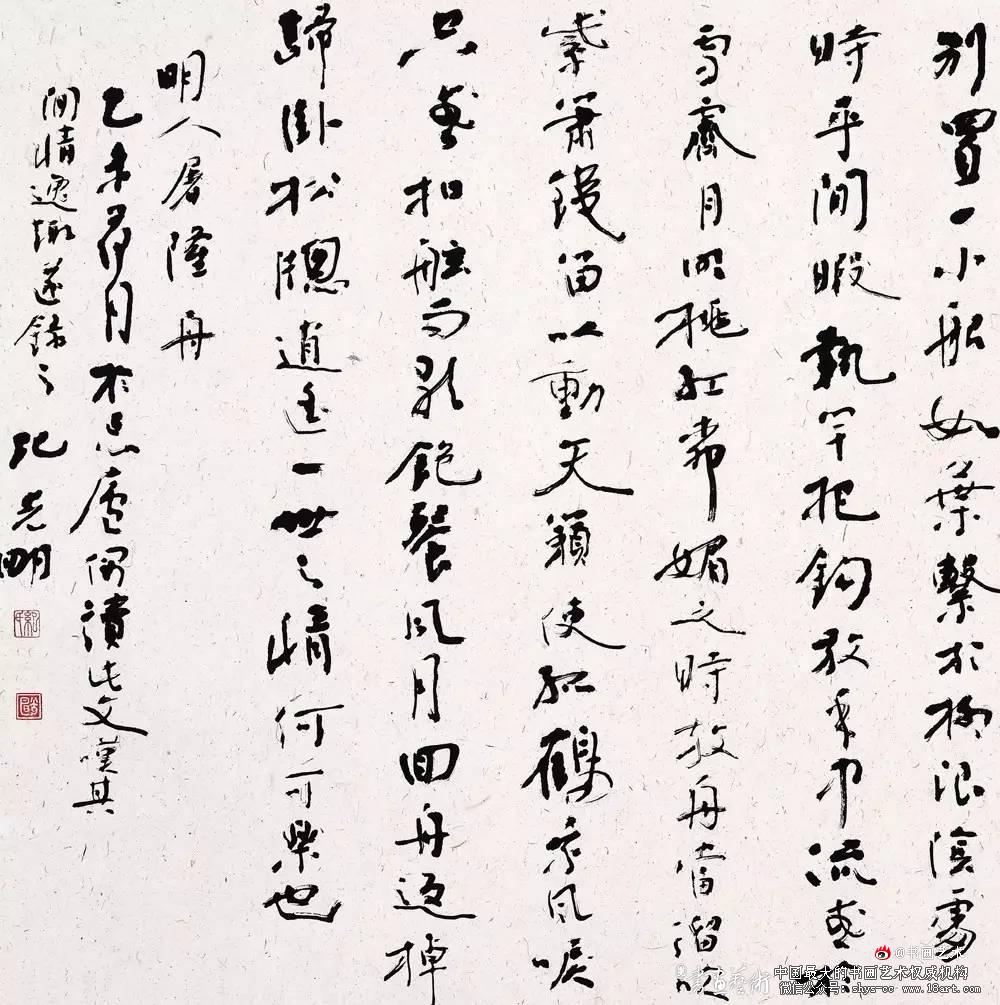 别置一小船如葉繫於柳浪陰處
時乎閒暇執竿把鈎放乎中流或於
雪霽月明桃紅柳媚之時放舟當溜吹
紫簫鐵笛以動天籟使孤鶴乘風唳
空或扣舷而歌飽餐風月回舟返棹
歸卧松牕逍遥一世之情何可樂也
明人屠隆舟
乙未荷月於忘廬偶讀此文嘆其
閒情逸趣遂錄之 紀光明
@书画艺术
中国最大的书画艺术权威机构
www.18art.com